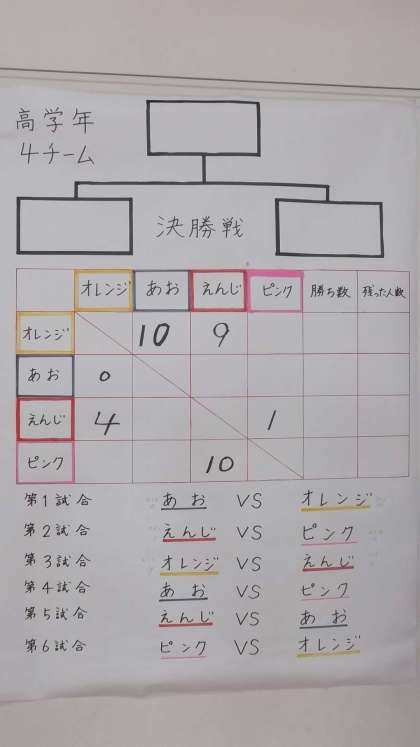 高学年
4チーム
決勝戦
オレンジ あお えんじ ピンク 勝ち数 残った人数
オレンジ 10 9
あお 0
えんじ 4 1
ピンク 10
第1試合 あお VS オレンジ
第2試合 えんじ VS ピンク
第3試合 オレンジ VS えんじ
第4試合 あお VS ピンク
第5試合 えんじ VS あお
第6試合 ピンク VS オレンジ